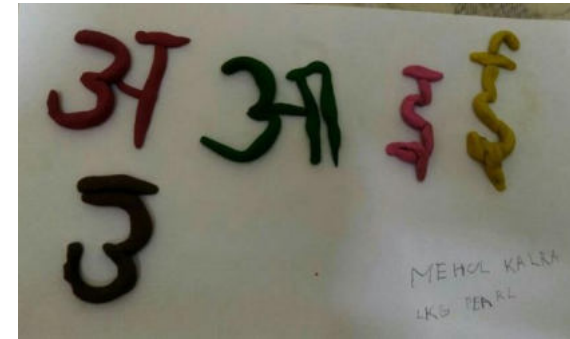 अ आ इ ई
उ
MEHOL KALRA
LKG PEARL